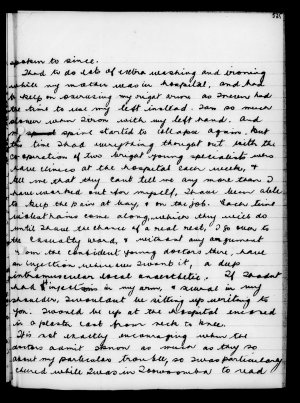 spoken to since.
I had to do lots of extra washing and ironing
while my mother was in hospital, and had
to keep on exercising my right arm as I never had
the time to use my left instead. I am so much
slower when I iron with my left hand. And
my spine started to collapse again. But
this time I had everything thought out with the
co-operation of two bright young specialists who
have clinics at the hospital each week, &
tell me that they cant tell me any more than I
have worked out for myself, I have been able
to keep the pain at bay, & on the job. Each time
violent pains come along, which they will do
until I have the chance of a real rest, I go over to
the casualty ward, & without any argument
from the confident young doctors there, have
an injection wherever I want it, a deep
intramuscular local anaesthetic. If I hadnt
had injections in my arm, & several in my
shoulder, I wouldnt be sitting up writing to
you. I would be up at the hospital encased
in a plaster cast from neck to knee.
It is not exactly encouraging when the
doctors admit I know as much as they do
about my particular trouble, so I was particularly
cheered while I was in Toowoomba to read